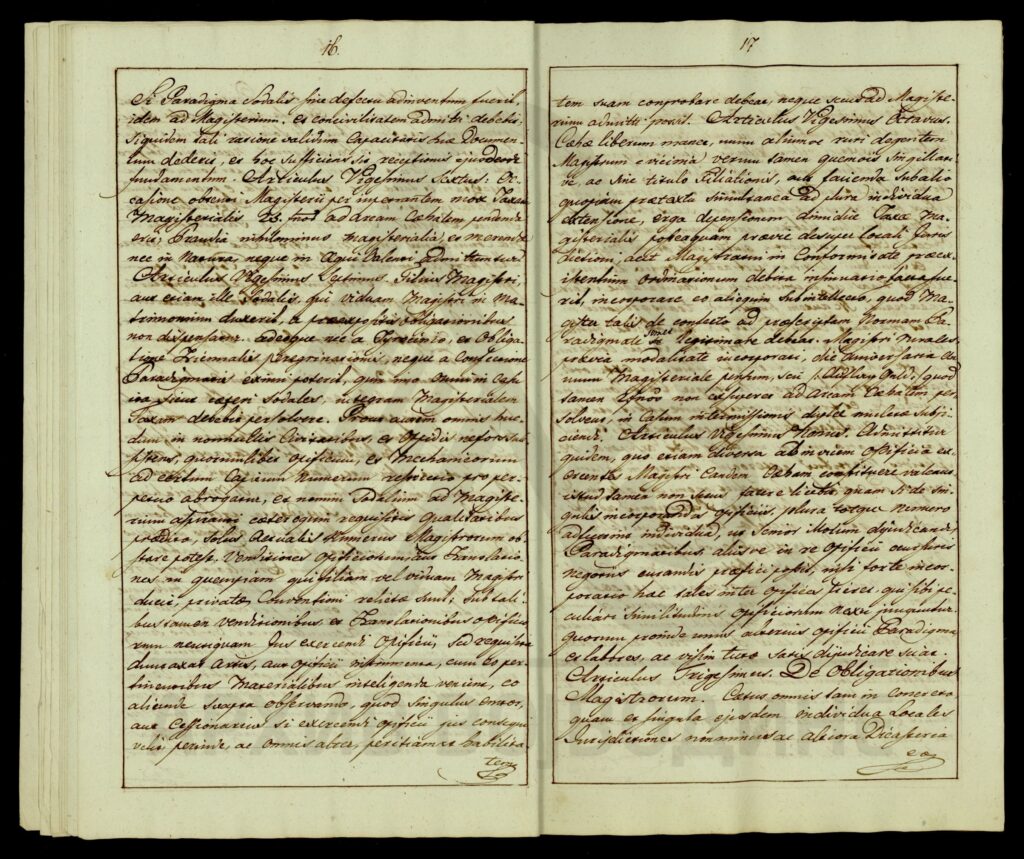 16.
Si Paradigma Sodalis sine defectu adinventum fuerit,
idem ad Magisterium et concivilitatem admitti debebit,
siquidem tali ratione validum Capacitatis suæ Documen-
tum dederit, et hoc sufficiens sit receptionis ejusdem
fundamentum. Articulus Vigesimus Sextus. Oc-
casione obtenti Magisterii per impetrantem mox Taxa
Magisterialis ad Arcam Cæhalem pendenda
erit, Prandia nihilominus Magisterialia, et merendæ
nec in Natura neque in Æqui Valenti admittentur.
Articulus Vigesimus Septimus. Filius Magistri,
aut etiam ille Sodalis, qui viduam Magistri in Ma-
trimonium duxerit, a præexpositis obligationibus
non dispensatur adeoque nec a Tyrocinio, et Obliga-
tione Triennalis peregrinationis, neque a Confectione
Paradigmatis eximi poterit, quin imo omnem in
sicut cæteri Sodales, integram Magisterialem
Taxam debebit persolvere. Prout autem omnis huc-
dum in nonnullis Civitatibus, et Oppidis
quorumlibet Opificum, et Mechanicorum
ad certum Capitum Numerum restrictio pro per-
petuo abrogatur, et nemini Sodalium ad Magiste-
rium aspiranti cæteroquin requisitis Qualitatibus
prædito, solus Actualis Numerus Magistrorum ob-
stare potest. Venditiones Opificiorum Translatio-
nes in quempiam qui filiam vel viduam Magistri
ducit, privatæ Conventioni relictæ sunt; sub tali-
bus tamen venditionibus et Translationibus Opificio-
rum neutiquam Jus exercendi Opificii, sed requisita
duntaxat Artis, aut Opificii instrumenta, cum eo per-
tinentibus Materialibus intelligenda veniunt, eo
aliunde observando, quod singulus emtor,
aut Cessionarius si exercendi Opificii jus consequi
velit, perinde, ac omnis alter, peritiam et habilita-
tem
17
tem suam comprobare debeat, neque secus ad Magiste-
rium admitti possit. Articulus Vigesimus Octavus.
Cæhæ liberum manet, unum aliumve ruri degentem
Magistrum e vicinia verum tamen quemvis singillati-
ve, ac sine titulo Filiationis, aut facienda sub alio
quopiam prætextu simultanea ad plura individua
extensione, erga depensionem dimidiæ Taxæ Ma-
gisterialis posteaquam prævie desuper Locali Juris
dictioni, aut Magistratui in Conformitate præex-
istentium Ordinationum debita insinuatio facta fue-
rit, incorporare eo aliequin subintellecto, quod Ma-
gister talis de confecto ad præscriptam Normam Pa-
radigmate semet legitimare debeat. Magistri rurales
prævia modalitate incorporati, die Anniversaria An-
nuum Magisteriale pensum, seu quod
tamen non ad Arcam Cæhalem per-
solvent, in Casum intermissionis duplæ mulctæ subji-
ciendi. Articulus Vigesimus Nonus. Admittitur
quidem, quo etiam diversa ab invicem Opificia ex-
ercentes Magistri eandem Cæham constituere valeant,
istud tamen non secus facere licebit, quam si de sin-
gulis incorporandis Opificiis, plura totque numero
adfuerint individua, ut Senior illorum dijudicandis
Paradigmatibus aliisve in re Opificii
negotiis curandis præfici possit, nisi forte incor-
poratio hæc tales inter Opifices fieret, qui sibi pe-
culiari similitudinis Opificiorum nexu junguntur,
quorum proinde unus alterius Opificii Paradigma
et labores, ac vitium tuto satis dijudicare sciat.
Articulus Trigesimus. De Obligationibus
Magistrorum. Cætus omnis tam in concreto
quam et singula ejusdem individua Locales
Jurisdictiones non minus ac altiora Dicasteria
ea